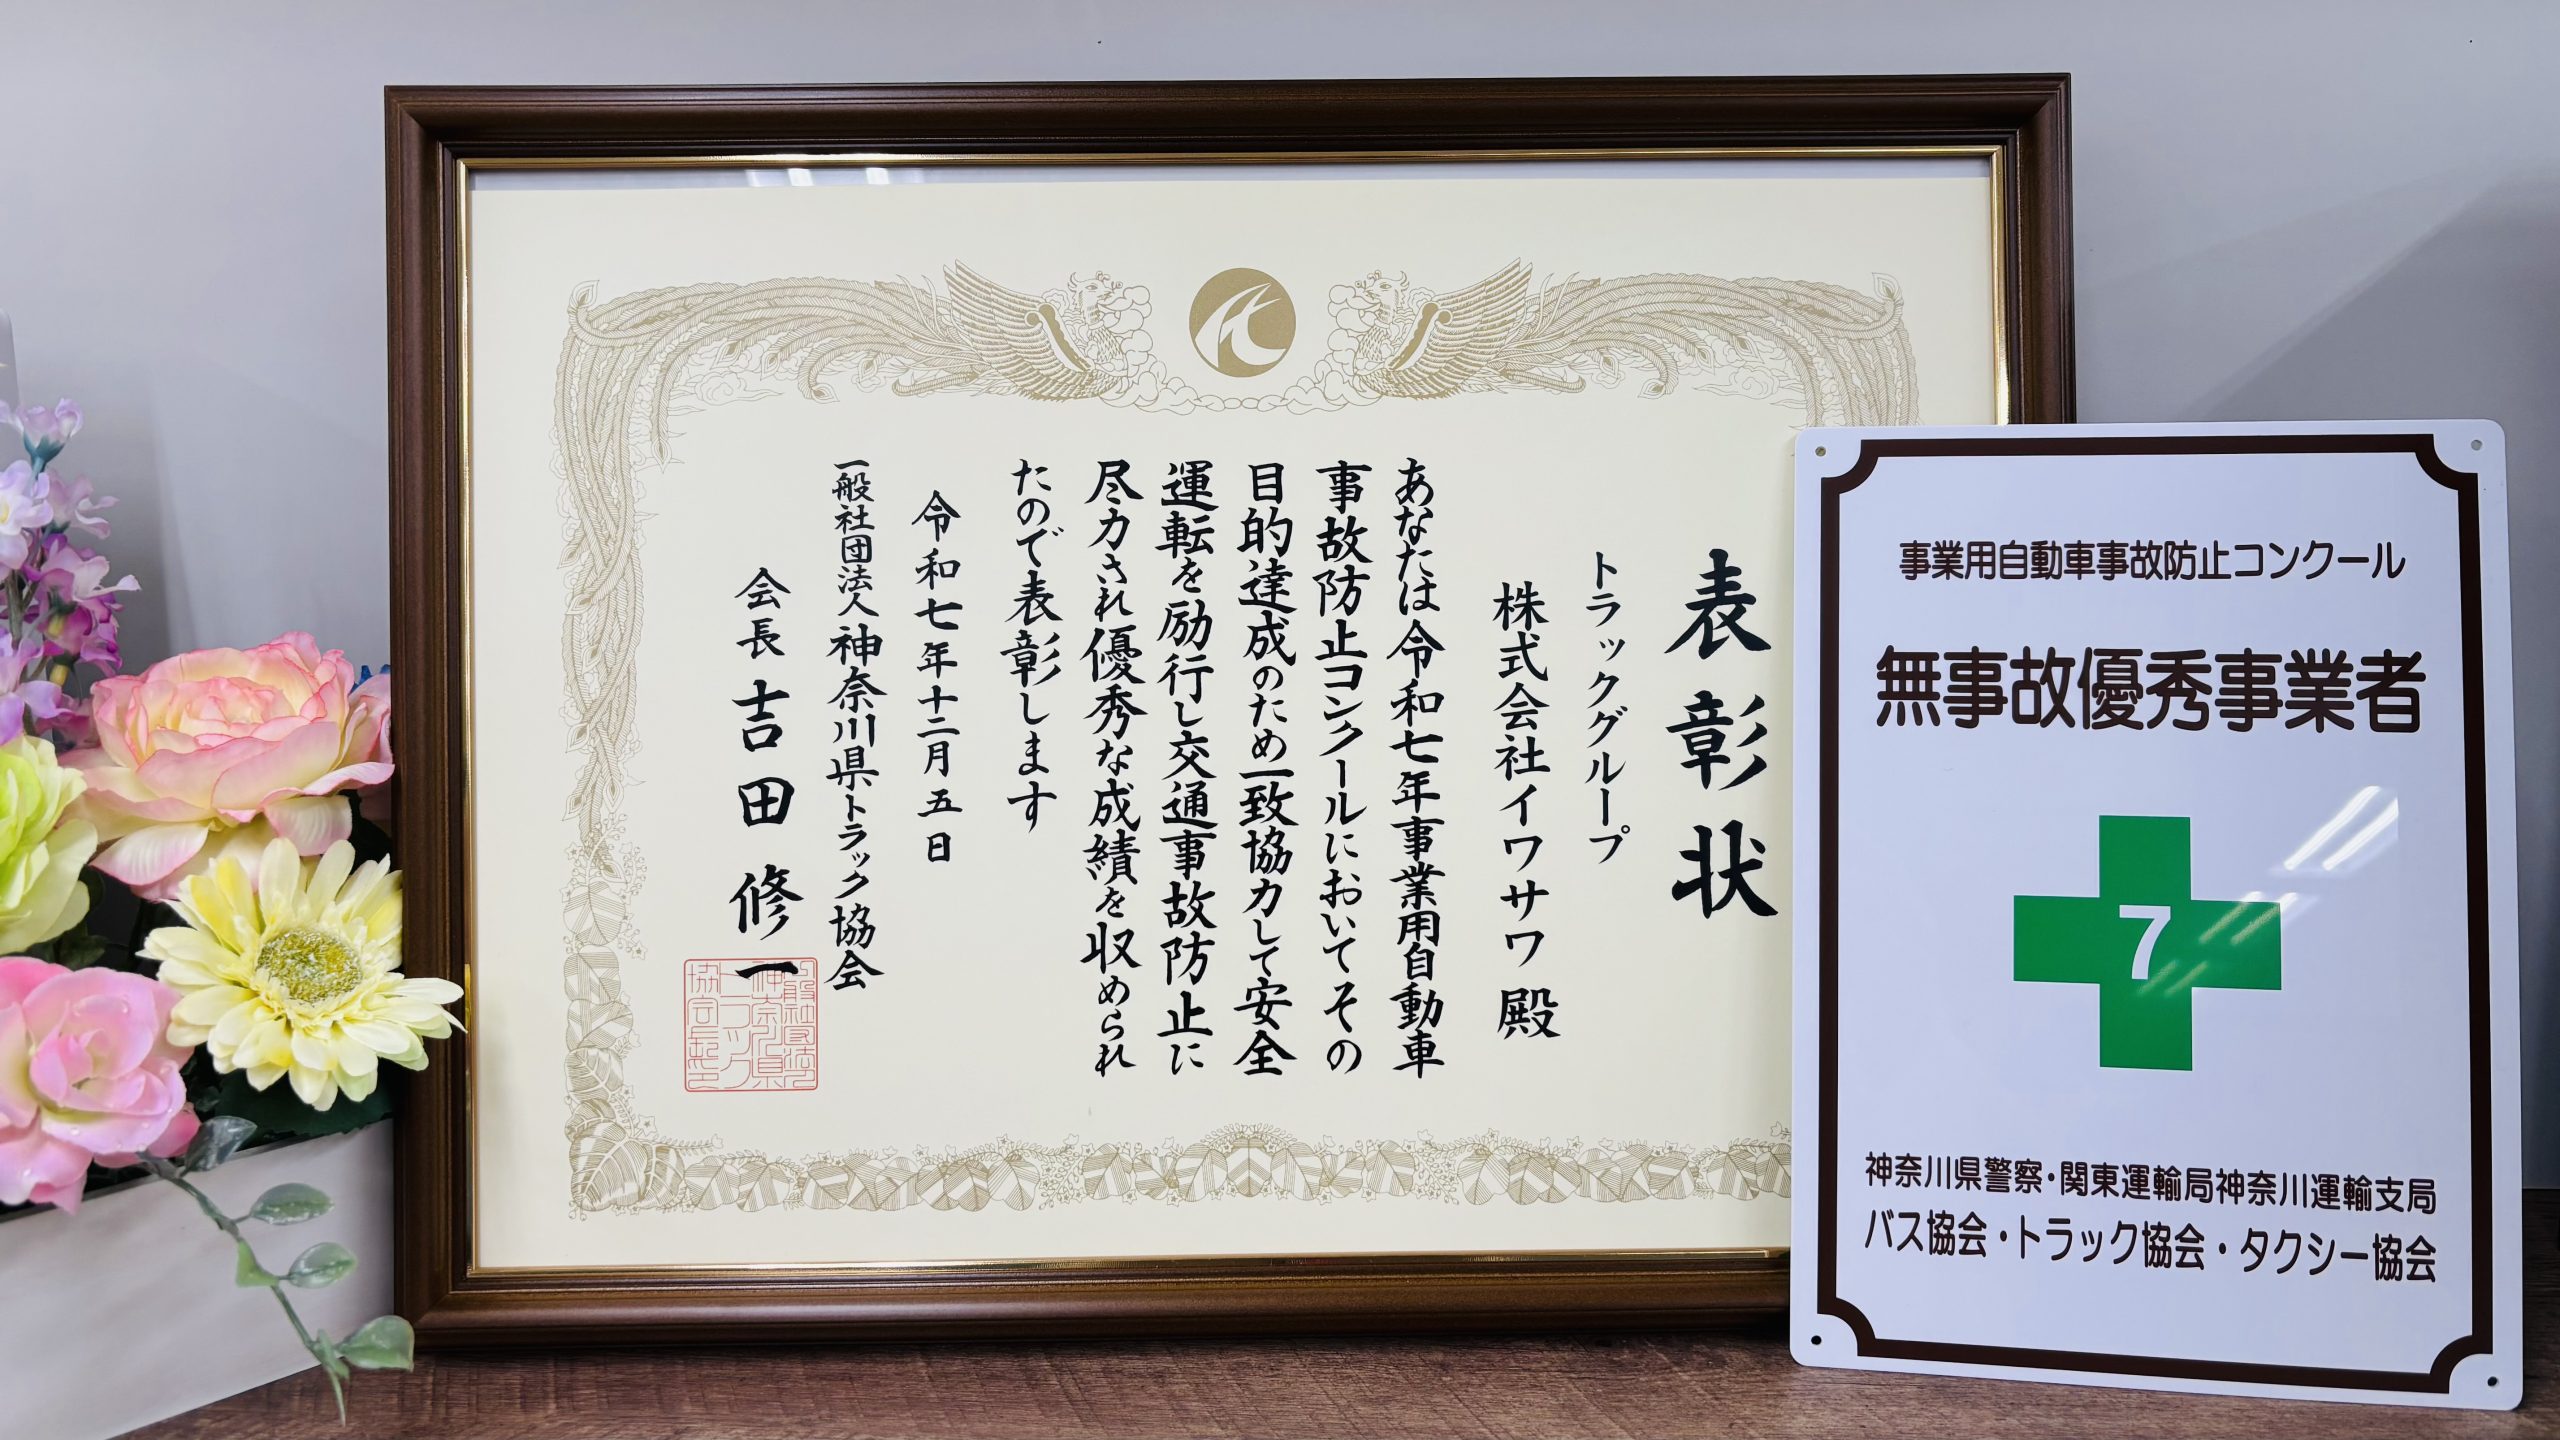 表彰状
トラックグループ
株式会社イワサワ殿
あなたは令和七年事業用自動車
事故防止コンクールにおいてその
目的達成のため一致協力して安全
運転を励行し交通事故防止に
尽力され優秀な成績を収められ
たので表彰します
令和七年十二月五日
一般社団法人神奈川県トラック協会
会長 吉田修一
事業用自動車事故防止コンクール
無事故優秀事業者
7
神奈川県警察・関東運輸局神奈川運輸支局
バス協会・トラック協会・タクシー協会